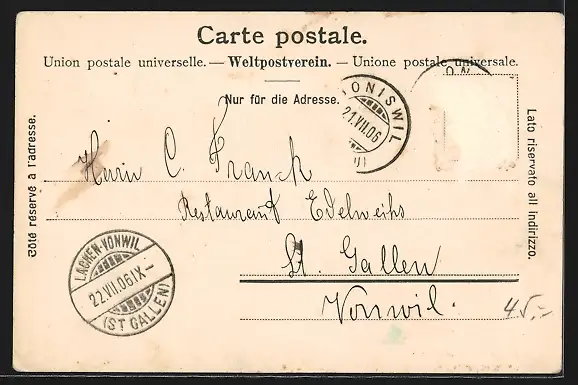 Carte postale.
Union postale universelle. — Weltpostverein. — Unione postale universale.
Nur für die Adresse.
ONISWIL
21.VII.06
VII
ON
Côté réservé à l'adresse.
Lato riservato all indirizzo.
Herrn C. Franck
Restaurant Edelweihs
St. Gallen
Vonwil.
LACHEN-VONWIL
22.VII.06.IX-
(ST GALLEN)
45,-